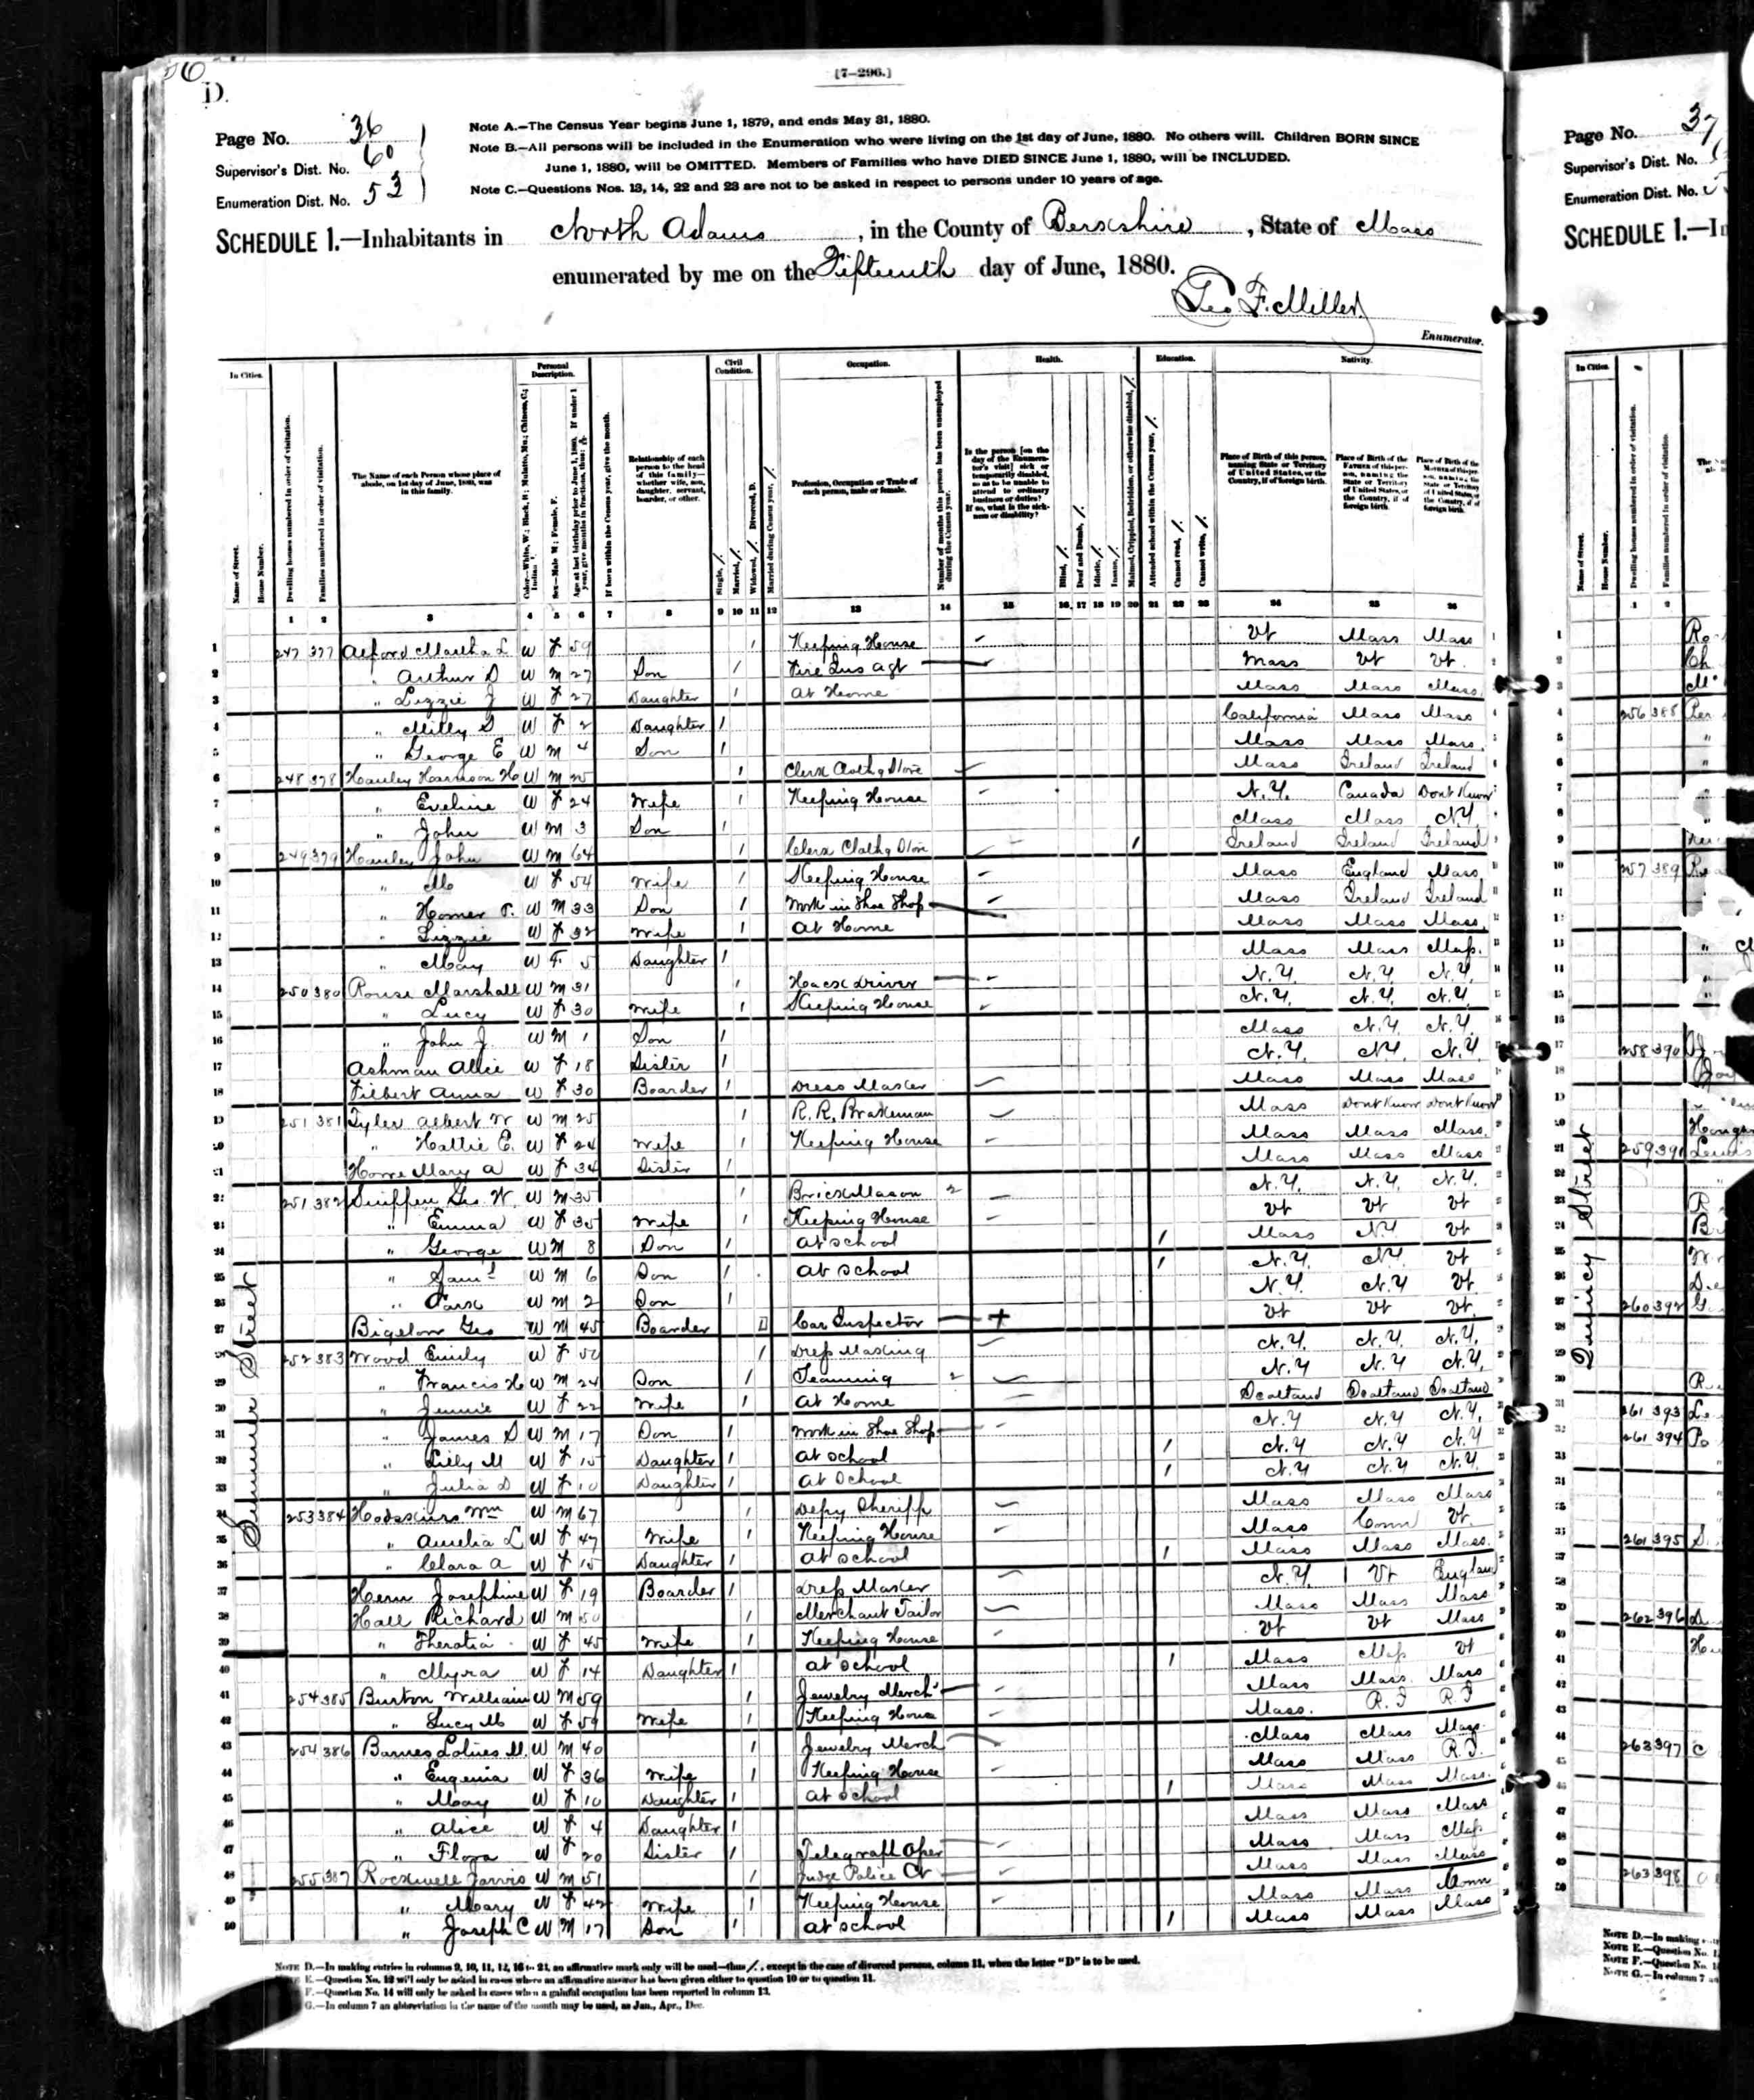 D.
[7-296.]
Page No. 36
Supervisor's Dist. No. 60
Enumeration Dist. No. 53
Note A.—The Census Year begins June 1, 1879, and ends May 31, 1880.
Note B.—All persons will be included in the Enumeration who were living on the 1st day of June, 1880. No others will. Children BORN SINCE
June 1, 1880, will be OMITTED. Members of Families who have DIED SINCE June 1, 1880, will be INCLUDED.
Note C.—Questions Nos. 13, 14, 22 and 23 are not to be asked in respect to persons under 10 years of age.
SCHEDULE 1.—Inhabitants in North Adams, in the County of Berkshire, State of Mass
enumerated by me on the Fifteenth day of June, 1880.
Geo F. Miller
Enumerator.
In Cities. Personal Description. Civil Condition. Occupation. Health. Education. Nativity.
Name of Street.
House Number.
Dwelling houses numbered in order of visitation.
Families numbered in order of visitation.
The Name of each Person whose place of abode, on 1st day of June, 1880, was in this family.
Relationship of each person to the head of this family—whether wife, son, daughter, servant, boarder, or other.
Profession, Occupation or Trade of each person, male or female.
Summer Street
1 247 377 Alford Martha L W F 59 / Keeping House Vt Mass Mass
2 " Arthur D W M 27 Son / Fire Ins Agt Mass Vt Vt
3 " Lizzie J W F 27 Daughter / At Home Mass Mass Mass
4 " Milly S W F 2 Daughter / California Mass Mass
5 " George E W M 4 Son / Mass Mass Mass
6 248 378 Hanley Harrison H W M 25 / Clerk Clothg Store Mass Ireland Ireland
7 " Eveline W F 24 Wife / Keeping House N.Y. Canada Dont Know
8 " John W M 3 Son / Mass Mass N.Y.
9 249 379 Hanley John W M 64 / Clerk Clothg Store / Ireland Ireland Ireland
10 " M W F 54 Wife / Keeping House Mass England Mass
11 " Homer T. W M 33 Son / Work in Shoe Shop Mass Ireland Ireland
12 " Lizzie W F 32 Wife / At Home Mass Mass Mass
13 " May W F. 5 Daughter / Mass Mass Mass.
14 250 380 Rouse Marshall W M 31 / Hack Driver N.Y. N.Y. N.Y.
15 " Lucy W F 30 Wife / Keeping House N.Y. N.Y. N.Y.
16 " John J. W M 1 Son / Mass N.Y. N.Y.
17 Ashman Allie W F 18 Sister / N.Y. N.Y. N.Y.
18 Filbert Anna W F 30 Boarder / Dress Maker Mass Mass Mass
19 251 381 Tyler Albert W W M 25 / R. R. Brakeman Mass Dont Know Dont Know
20 " Hattie E. W F 24 Wife / Keeping House Mass Mass Mass.
21 Howe Mary A W F 34 Sister / Mass Mass Mass
22 251 382 Sniffen Geo. W. W M 35 / Brick Mason 2 N.Y. N.Y. N.Y.
23 " Emma W F 35 Wife / Keeping House Vt Vt Vt
24 " George W M 8 Son / At School / Mass N.Y Vt
25 " Saml W M 6 Son / At School / N.Y. N.Y. Vt
26 " Park W M 2 Son / N.Y. N.Y Vt.
27 Bigelow Geo W M 45 Boarder D Car Inspector Vt Vt Vt.
28 252 383 Wood Emily W F 50 / Dress Making N.Y. N.Y. N.Y.
29 " Francis H W M 24 Son / Teaming 2 N.Y N.Y N.Y.
30 " Jennie W F 22 Wife / At Home Scotland Scotland Scotland
31 " James S W M 17 Son / Work in Shoe Shop N.Y N.Y N.Y.
32 " Lilly M W F 15 Daughter / At School / N.Y N.Y N.Y
33 " Julia D W F 10 Daughter / At School / N.Y N.Y N.Y.
34 253 384 Hodskins Wm W M 67 / Depy Sheriff Mass Mass Mass
35 " Amelia L W F 47 Wife / Keeping House Mass Conn Vt.
36 " Clara A W F 15 Daughter / At School / Mass Mass Mass.
37 Hern Josephine W F 19 Boarder / Dress Maker N.Y. Vt England
38 Hall Richard W M 50 / Merchant Tailor Mass Mass Mass.
39 " Theratia W F 45 Wife / Keeping House Vt Vt Mass
40 " Myra W F 14 Daughter / At School / Mass Mass Vt
41 254 385 Burton William W M 59 / Jewelry Merch Mass Mass. Mass
42 " Lucy M W F 59 Wife / Keeping House Mass. R.I R.I
43 254 386 Barnes M. W M 40 / Jewelry Merch Mass Mass Mass.
44 " Eugenia W F 36 Wife / Keeping House Mass Mass R.I.
45 " May W F 10 Daughter / At School / Mass Mass Mass.
46 " Alice W F 4 Daughter / Mass Mass Mass
47 " Flora W F 20 Sister / Telegraft Oper Mass Mass Mass
48 255 387 Rockwell Jarvis W M 51 / Judge Police Ct Mass Mass Mass
49 " Mary W F 42 Wife / Keeping House Mass Mass Conn
50 " Joseph C W M 17 Son / At School / Mass Mass Mass
NOTE D.—In making entries in columns 9, 10, 11, 12, 16 to 23, an affirmative mark only will be used—thus /, except in the case of divorced persons, column 11, when the letter "D" is to be used.
E.—Question No. 12 will only be asked in cases where an affirmative answer has been given either to question 10 or to question 11.
F.—Question No. 14 will only be asked in cases when a gainful occupation has been reported in column 13.
G.—In column 7 an abbreviation in the name of the month may be used, as Jan., Apr., Dec.
Page No. 37
Supervisor's Dist. No.
Enumeration Dist. No.
SCHEDULE 1.—
In Cities.
Quincy Street
256 388
257 389
258 390
259 391 Lewis
260 392
261 393
261 394
261 395
262 396
263 397
263 398